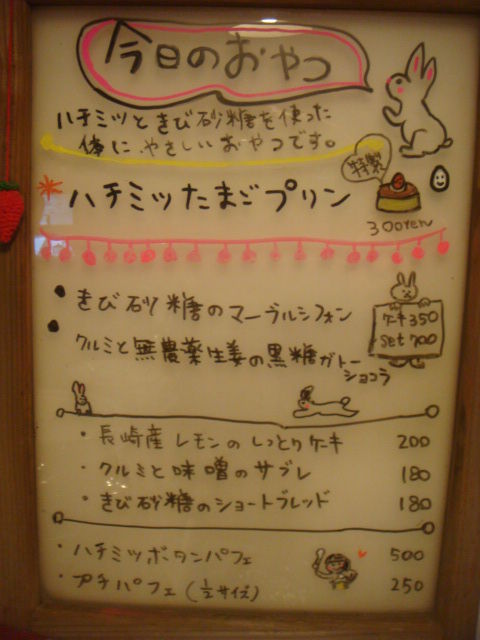 今日のおやつ
ハチミツときび砂糖を使った
体にやさしいおやつです。
特製
ハチミツたまごプリン
300yen
・きび砂糖のマーブルシフォン
・クルミと無農薬生姜の黒糖ガトー
ショコラ
ケーキ350
set 700
・長崎産レモンのしっとりケーキ 200
・クルミと味噌のサブレ 180
・きび砂糖のショートブレッド 180
・ハチミツボタンパフェ 500
・プチパフェ(1/2サイズ) 250